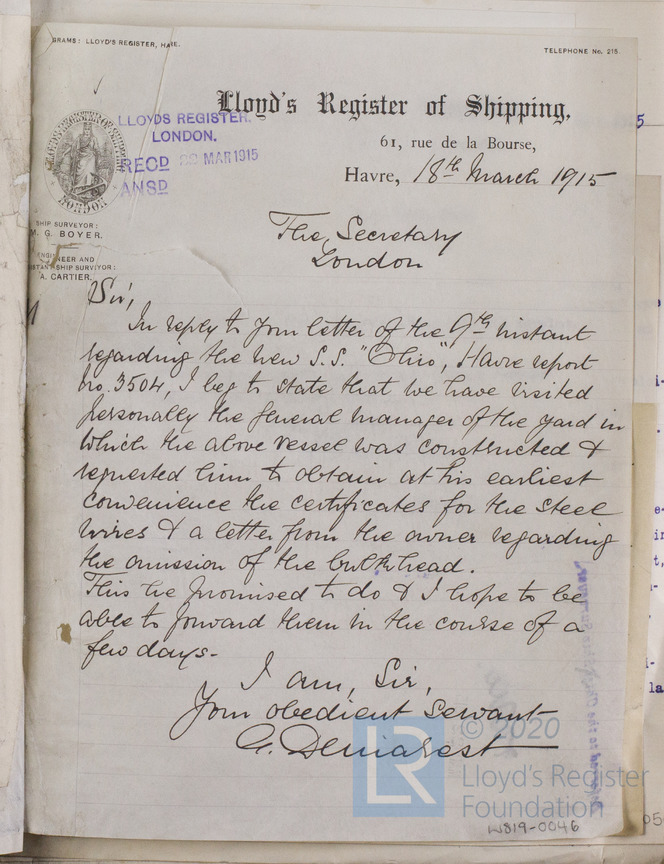 GRAMS: LLOYD'S REGISTER,
TELEPHONE No. 215.
Lloyd's Register of Shipping,
61, rue de la Bourse,
Havre, 18th March 1915
LLOYDS REGISTER.
LONDON.
RECD MAR 1915
ANSD
LONDON
SHIP SURVEYOR:
M. G. BOYER.
ENGINEER AND
SHIP SURVEYOR:
A. CARTIER.
The Secretary
London
Sir,
In reply to your letter of the 9th instant
regarding the new S.S. "Ohio", Havre report
No. 3504, I beg to state that we have visited
personally the general manager of the yard in
which the above vessel was constructed &
requested him to obtain at his earliest
convenience the certificates for the steel
wires & a letter from the owner regarding
the omission of the bulkhead.
This he promised to do & I hope to be
able to forward them in the course of a
few days-
I am, Sir,
Your obedient Servant
© 2020
LR
Lloyd's Register
Foundation
W819-0046